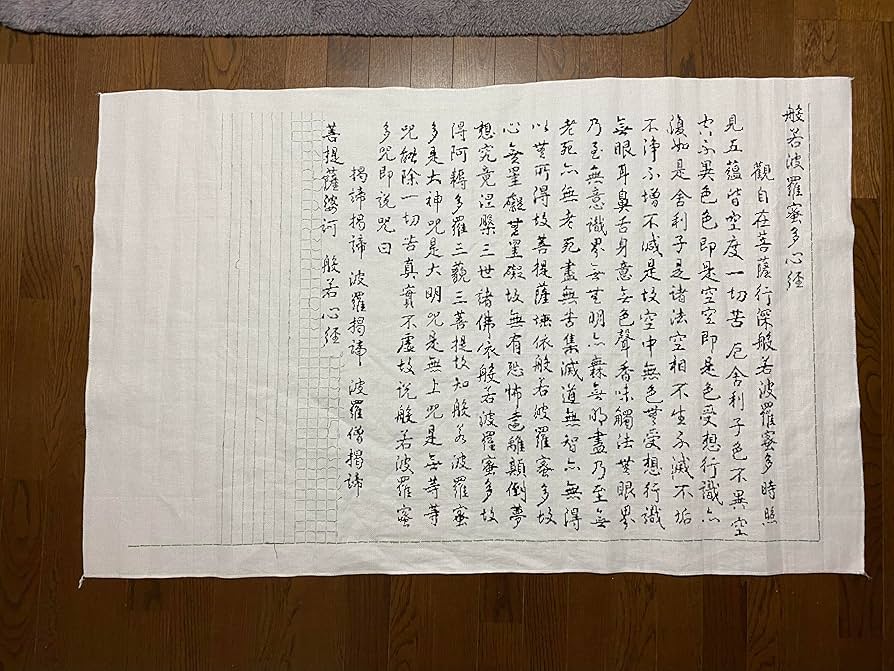 般若波羅蜜多心経
觀自在菩薩行深般若波羅蜜多時照
見五蘊皆空度一切苦厄舎利子色不異空
空不異色色即是空空即是色受想行識亦
復如是舎利子是諸法空相不生不滅不垢
不浄不増不滅是故空中無色無受想行識
無眼耳鼻舌身意無色聲香味觸法無眼界
乃至無意識界無無明亦無無明盡乃至無
老死亦無老死盡無苦集滅道無智亦無得
以無所得故菩提薩埵依般若波羅蜜多故
心無罣礙無罣礙故無有恐怖遠離顛倒夢
想究竟涅槃三世諸佛依般若波羅蜜多故
得阿耨多羅三藐三菩提故知般若波羅蜜
多是大神呪是大明呪是無上呪是無等等
呪能除一切苦真實不虚故説般若波羅蜜
多呪即説呪曰
掲諦掲諦 波羅掲諦 波羅僧掲諦
菩提薩婆訶 般若心経